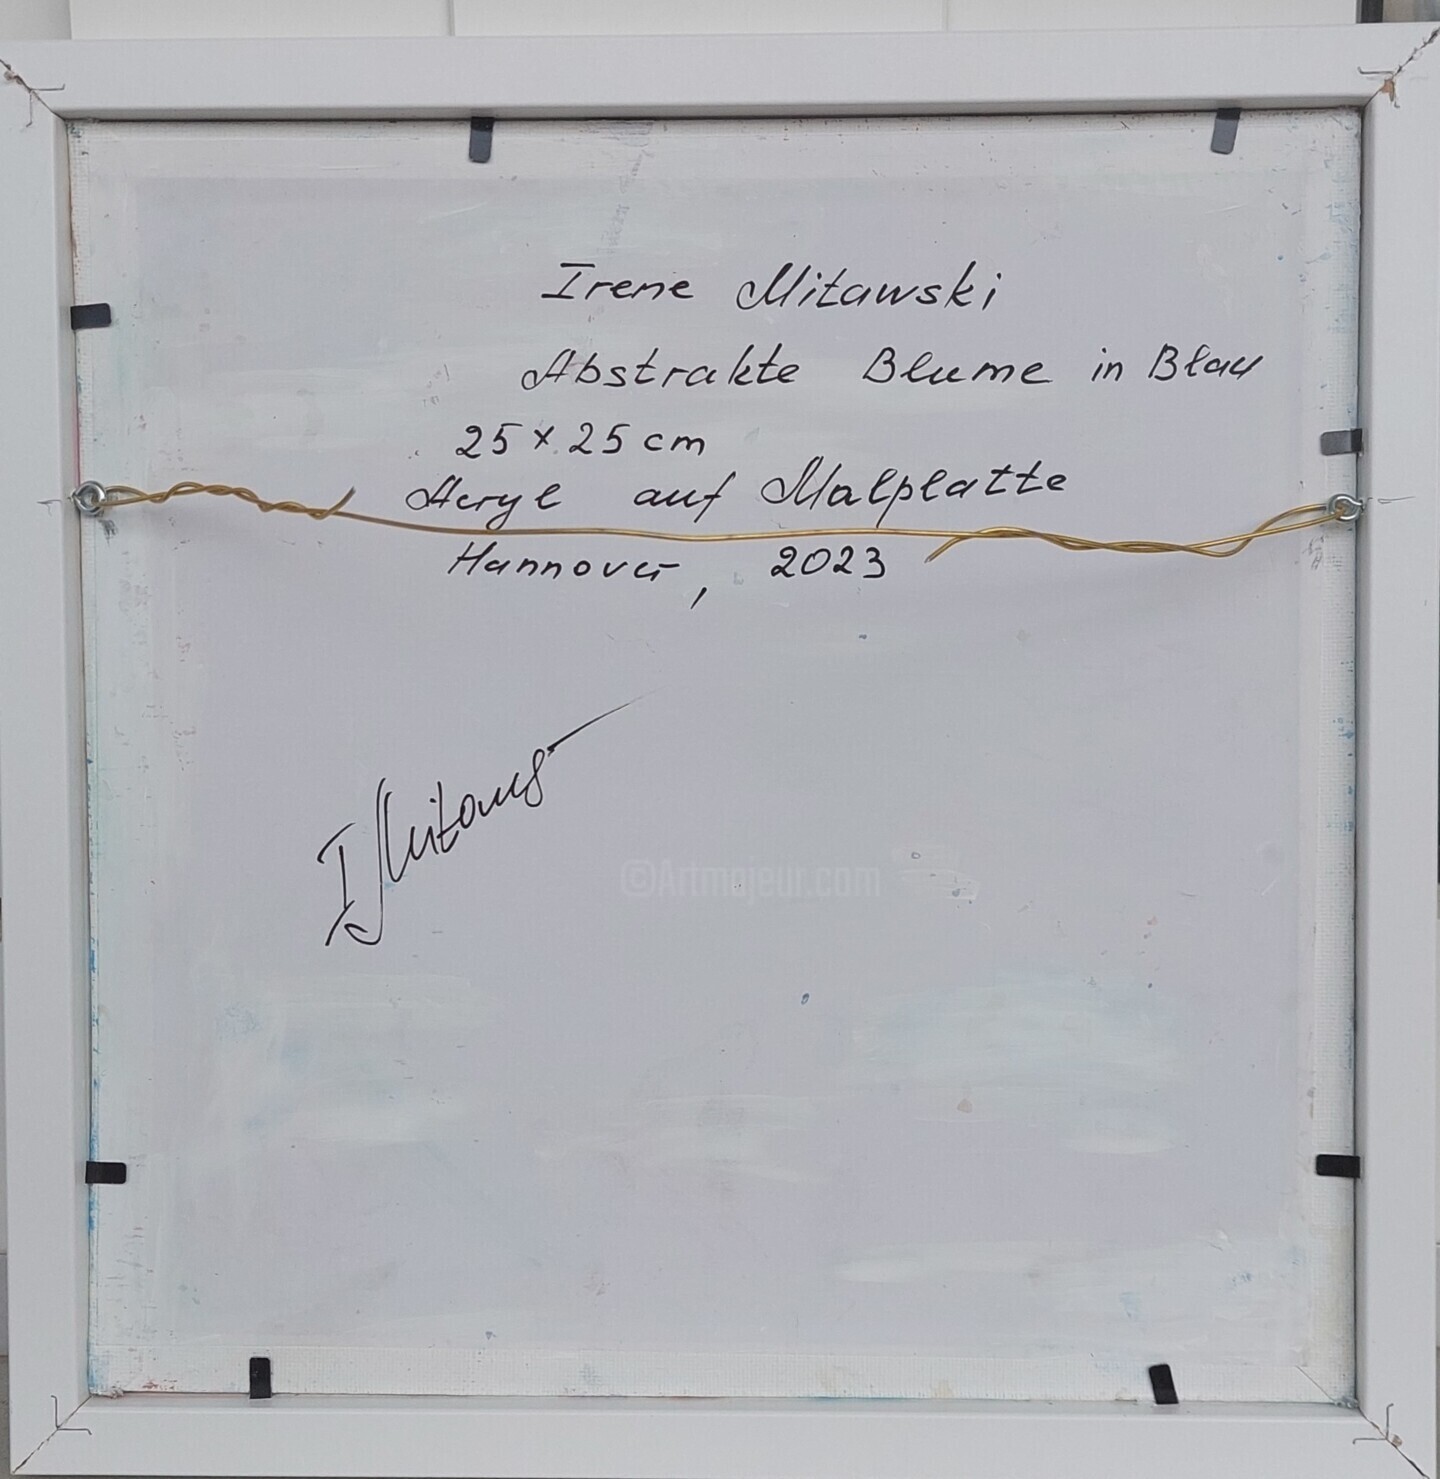 Irene Mitawski
Abstrakte Blume in Blau
25 x 25 cm
Acryl auf Malplatte
Hannover, 2023
I Mitaws
©Artmajeur.com